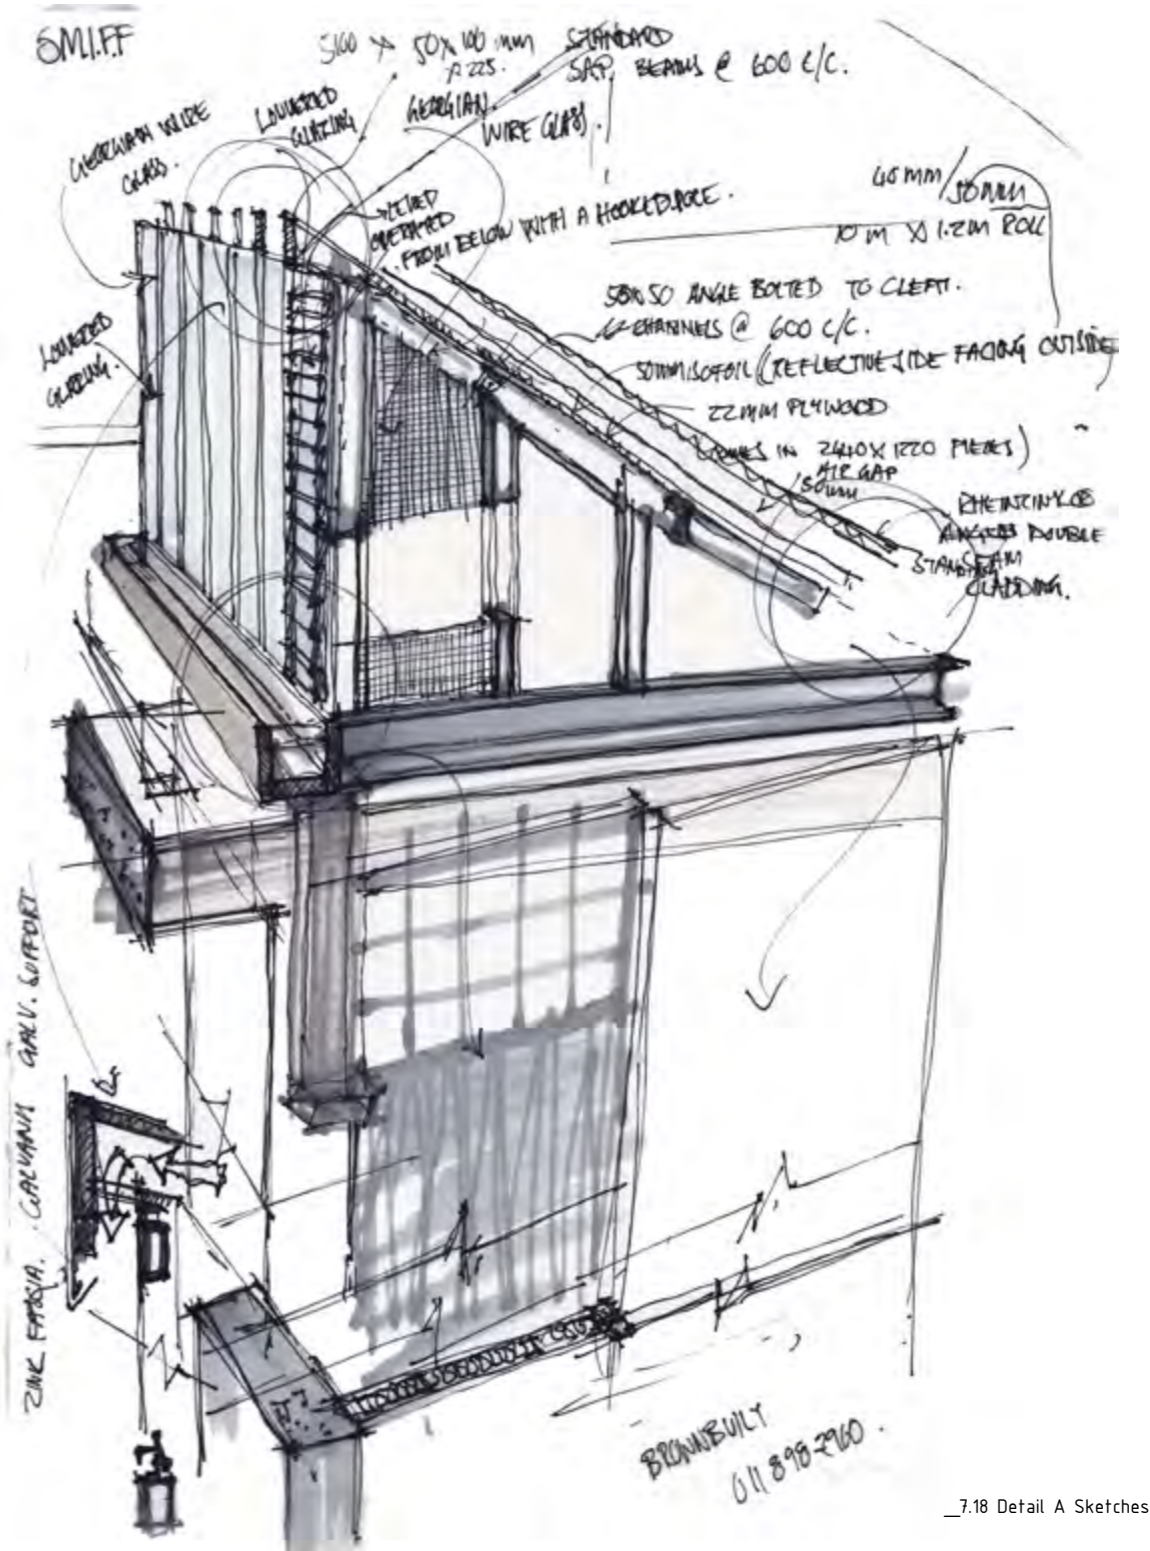 SMIFF
50 X 100 mm
STANDARD
SAP BEAMS @ 600 C/C.
GEORGIAN
WIRE GLASS.
LOUVERED
GLAZING
GEORGIAN WIRE
GLASS.
OPERATED
FROM BELOW WITH A HOOKED POLE.
50mm
10 m X 1.2m ROLL
50X50 ANGLE BOLTED TO CLEAT.
CHANNELS @ 600 C/C.
LOUVERED
GLAZING.
50mm ISOFOIL (REFLECTIVE SIDE FACING OUTSIDE
22mm PLYWOOD
IN 2440X1220 PIECES)
AIR GAP
50mm
RHEINZINK
ANGLED DOUBLE
STANDING SEAM
CLADDING.
ZINK FASSIA. GALV. SUPPORT
BROWNBUILT
011 898-2960.
__7.18 Detail A Sketches